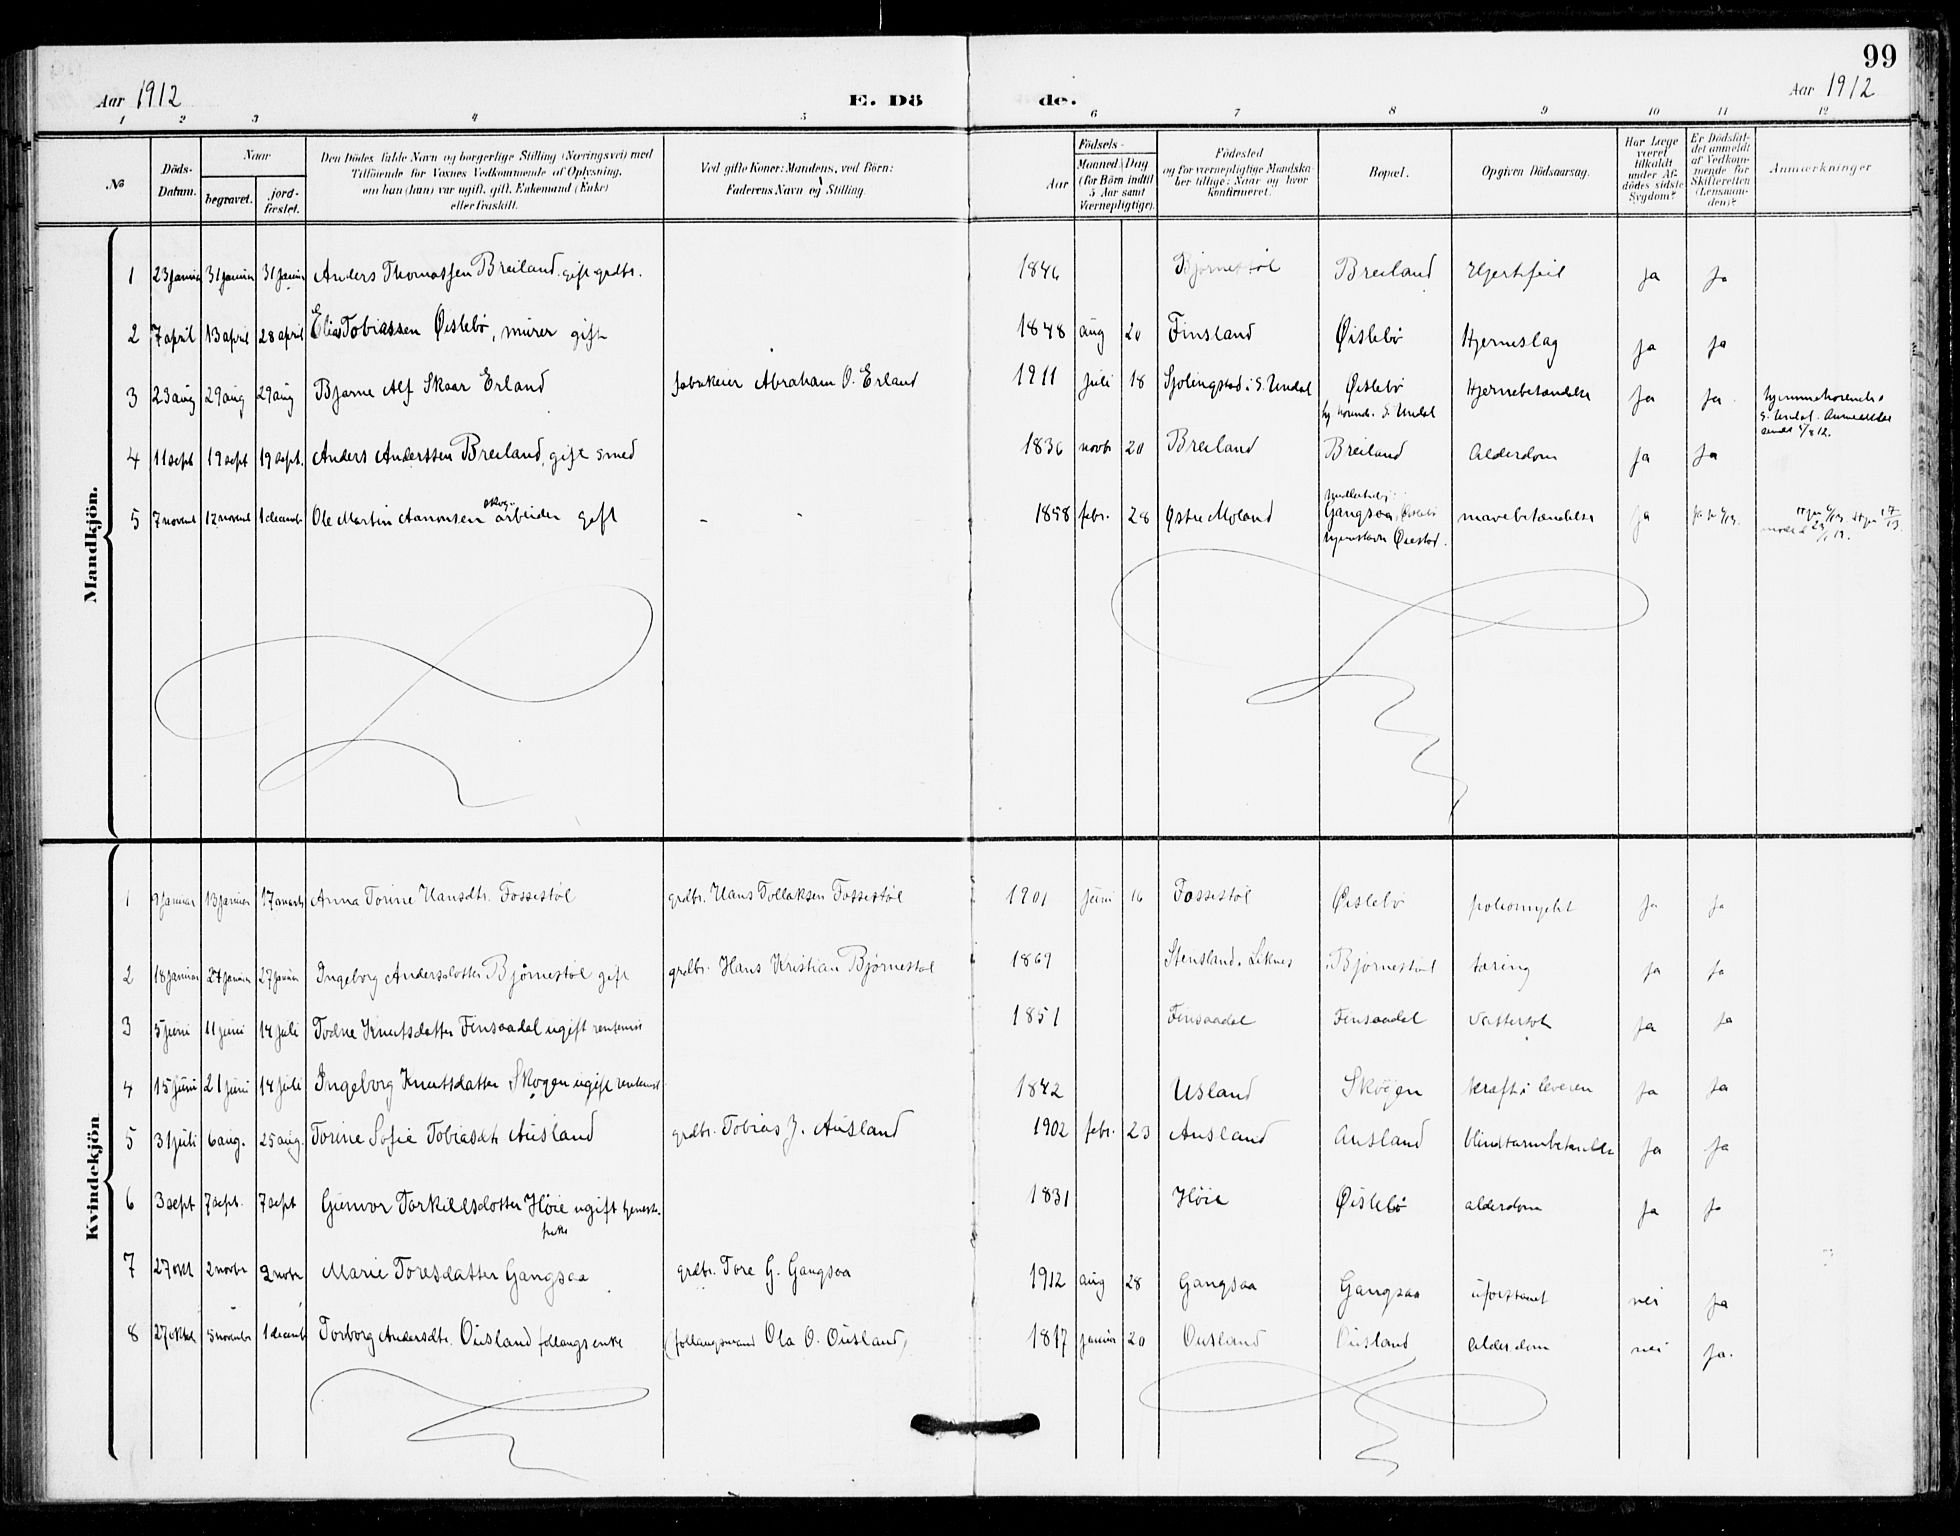 99
Aar 1912
E. Dö
de.
Aar 1912
1 2 3 4 5 6 7 8 9 10 11 12
No
Döds-Datum.
Naar
begravet.
jord-fæstet.
Den Dödes fulde Navn og borgerlige Stilling (Næringsvei) med
Tilföiende for Voxnes Vedkommende af Oplysning,
om han (hun) var ugift, gift, Enkemand (Enke)
eller fraskilt.
Ved gifte Koner: Mandens, ved Börn:
Faderens Navn og Stilling.
Födsels-
Aar
Maaned Dag
(for Börn indtil 5 Aar samt Værnepligtige).
Födested
og for værnepligtige Mandska-
ber tillige: Naar og hvor
konfirmeret.
Bopæl.
Opgiven Dödsaarsag.
Har Læge været tilkaldt under Afdödes sidste Sygdom?
Er Dödsfaldet anmeldt af Vedkommende for Skifteretten (Lensmanden)?
Anmærkninger
Mandkjön.
1 23 januar 31 januar 31 januar Anders Thomassen Breiland. gift grdbr. 1846 Bjørnestøl Breiland Hjertefeil Ja Ja
2 7 april 13 april 28 april Elias Tobiassen Øislebø, murer gift 1848 aug 20 Finsland Øislebø Hjerneslag Ja Ja
3 23 aug 29 aug 29 aug Bjarne Alf Skaar Erland fabrikeier Abraham O. Erland 1911 juli 18 Sjølingstad i S. Undal Øislebø Hjernebetændelse Ja Ja hjemmehørende i
S. Undal
S. Undal. Anmeldelse
sendt
4 11 sept 19 sept 19 sept. Anders Anderssen Breiland, gift smed 1836 novb 20 Breiland Breiland Alderdom Ja Ja
5 7 novemb 12 novemb 1 decemb. Ole Martin Aanonsen skog-arbeider gift - - 1858 febr. 28 Østre Moland Gangsaa, Øislebø mavebetændelse Ja
Øiestad.
Kvindekjön
1 9 januar 13 januar 17 marts Anna Torine Hansdtr. Fossestøl grdbr. Hans Tollaksen Fossestøl 1901 juni 16 Fossestøl Øislebø poliomyelit Ja Ja
2 18 januar 27 januar 27 januar Ingeborg Andersdatter Bjørnestøl gift grdbr. Hans Kristian Bjørnestøl 1869 Stensland, Liknes Bjørnestøl tæring Ja Ja
3 5 juni 11 juni 14 juli Todne Knutsdatter Finsaadal ugift 1851 Finsaadal Finsaadal Vattersot Ja Ja
4 15 juni 21 juni 14 juli Ingeborg Knutsdatter Skogen ugift 1842 Usland Skogen kræft i leveren Ja Ja
5 31 juli 6 aug. 25 aug. Torine Sofie Tobiasdtr Ausland grdbr. Tobias J. Ausland 1902 febr. 23 Ausland Ausland blindtarmbetændelse Ja Ja
6 3 sept 7 sept. 7 sept Gunvor Torkildsdatter Høie ugift tjeneste-
pike 1831 Høie Øislebø alderdom Ja Ja
7 27 okt 2 novbr 2 novbr Marie Toresdatter Gangsaa grdbr. Tore G. Gangsaa 1912 aug 28 Gangsaa Gangsaa uforstaaet nei Ja
8 27 oktob 5 novembr 1 decemb Torborg Andersdtr. Ousland follaugsenke (follaugsmand Ola O. Ousland) 1817 januar 20 Ousland Ousland alderdom nei Ja.